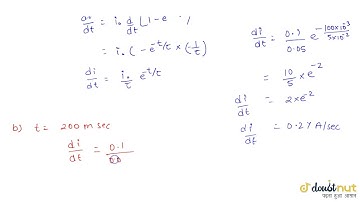 di/dt = i₀ d/dt (1-e
= i₀ (-e^-t/τ × (-1/τ)
di/dt = i₀/τ e^-t/τ
b) t = 200 m sec
di/dt = 0.1/
di/dt = 0.1/0.05 e^-100×10⁻³/5×10⁻²
= 10/5 × e^-2
di/dt = 2×e^-2
di/dt = 0.27 A/sec
doubtnut